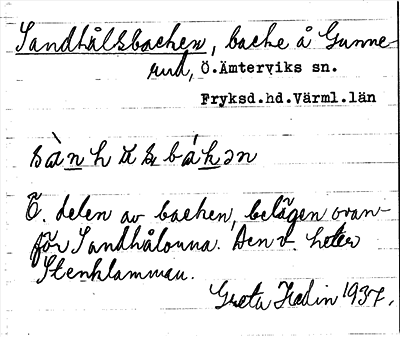 Sandhålsbacken, backe å Gunne-
rud, Ö.Ämterviks sn.
Fryksd.hd.Värml.län
Ö. delen av backen, belägen ovan-
för Sandhålorna. Den v. heter
Stenklammen.
Greta Hedin 1937.